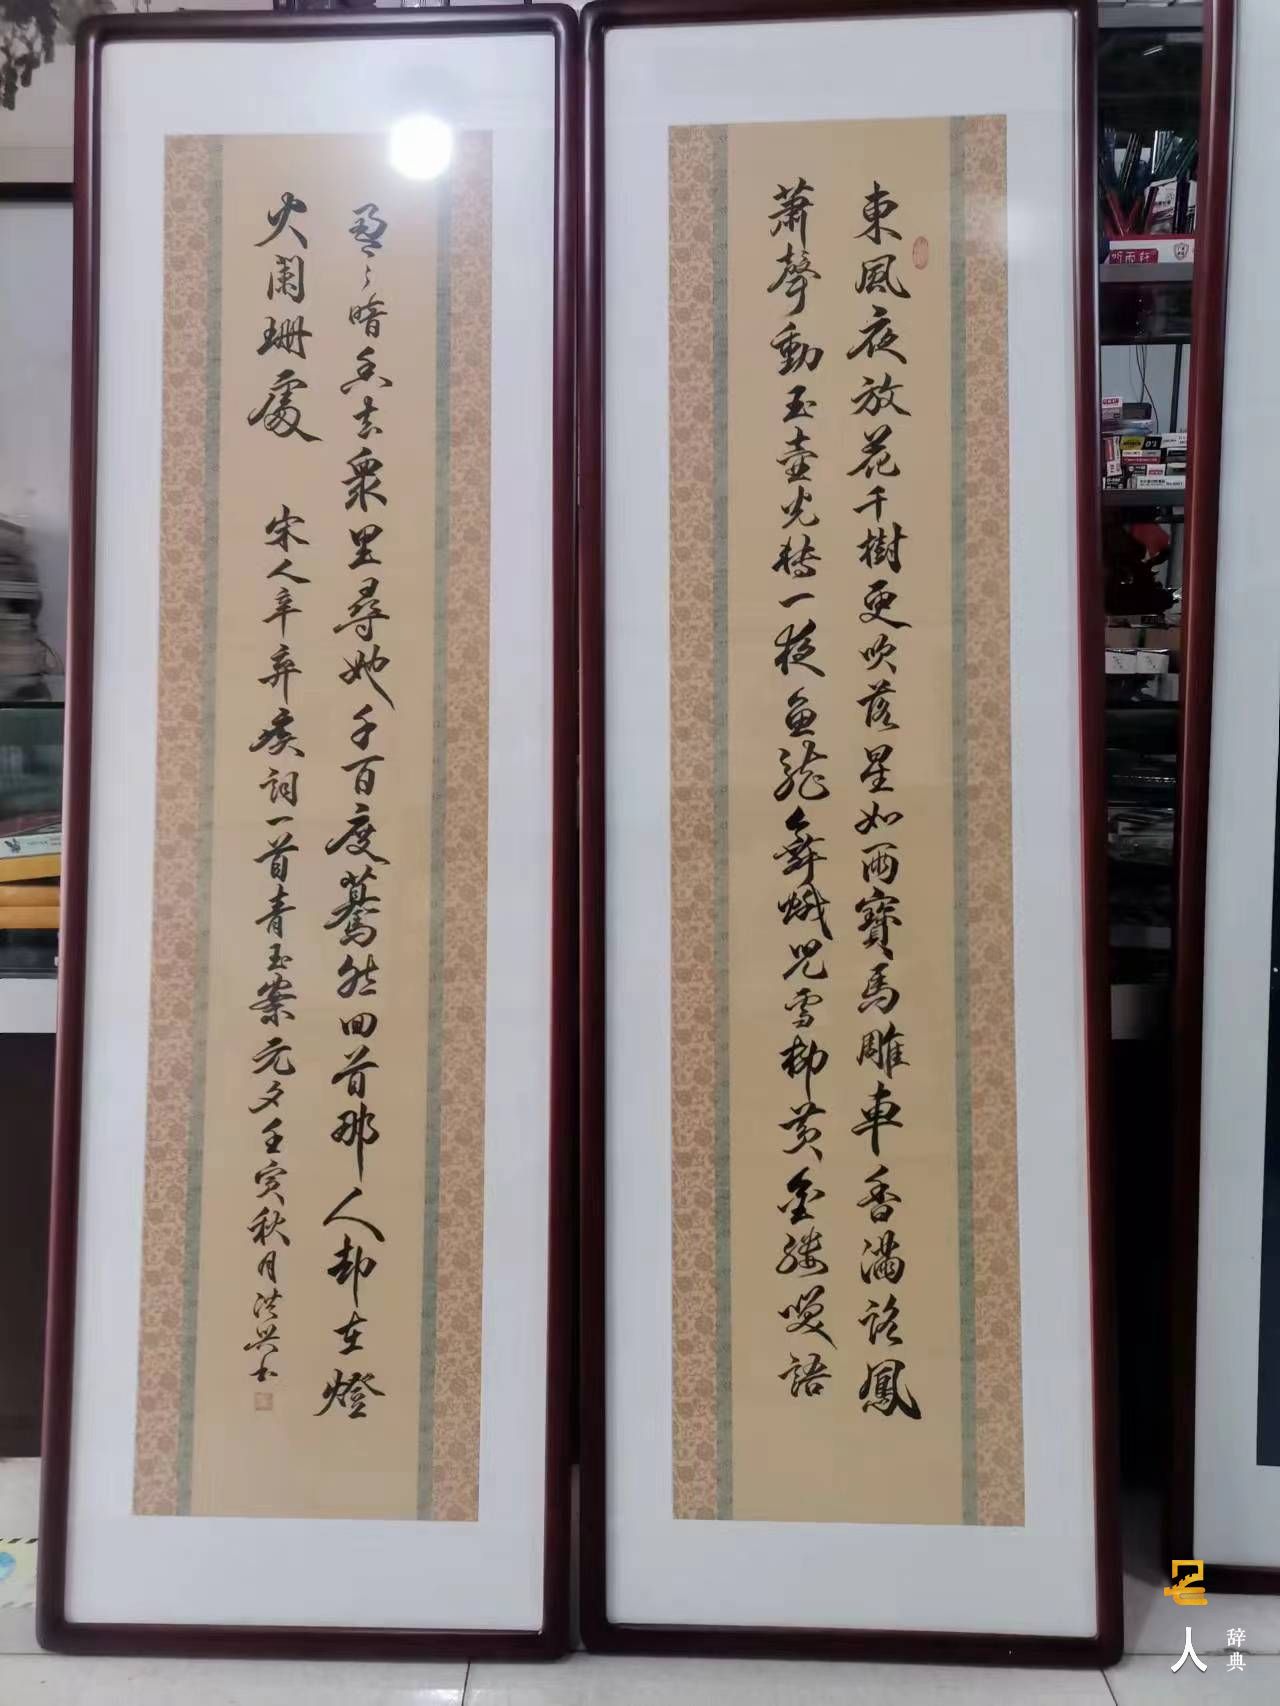 東風夜放花千樹更吹落星如雨寶馬雕車香滿路鳳
蕭聲動玉壺光轉一夜魚龍舞蛾兒雪柳黃金縷笑語
盈々暗香去衆里尋她千百度驀然回首那人却在燈
火闌珊處 宋人辛弃疾詞一首青玉案元夕壬寅秋月洪興书
听雨轩
名人
辞典